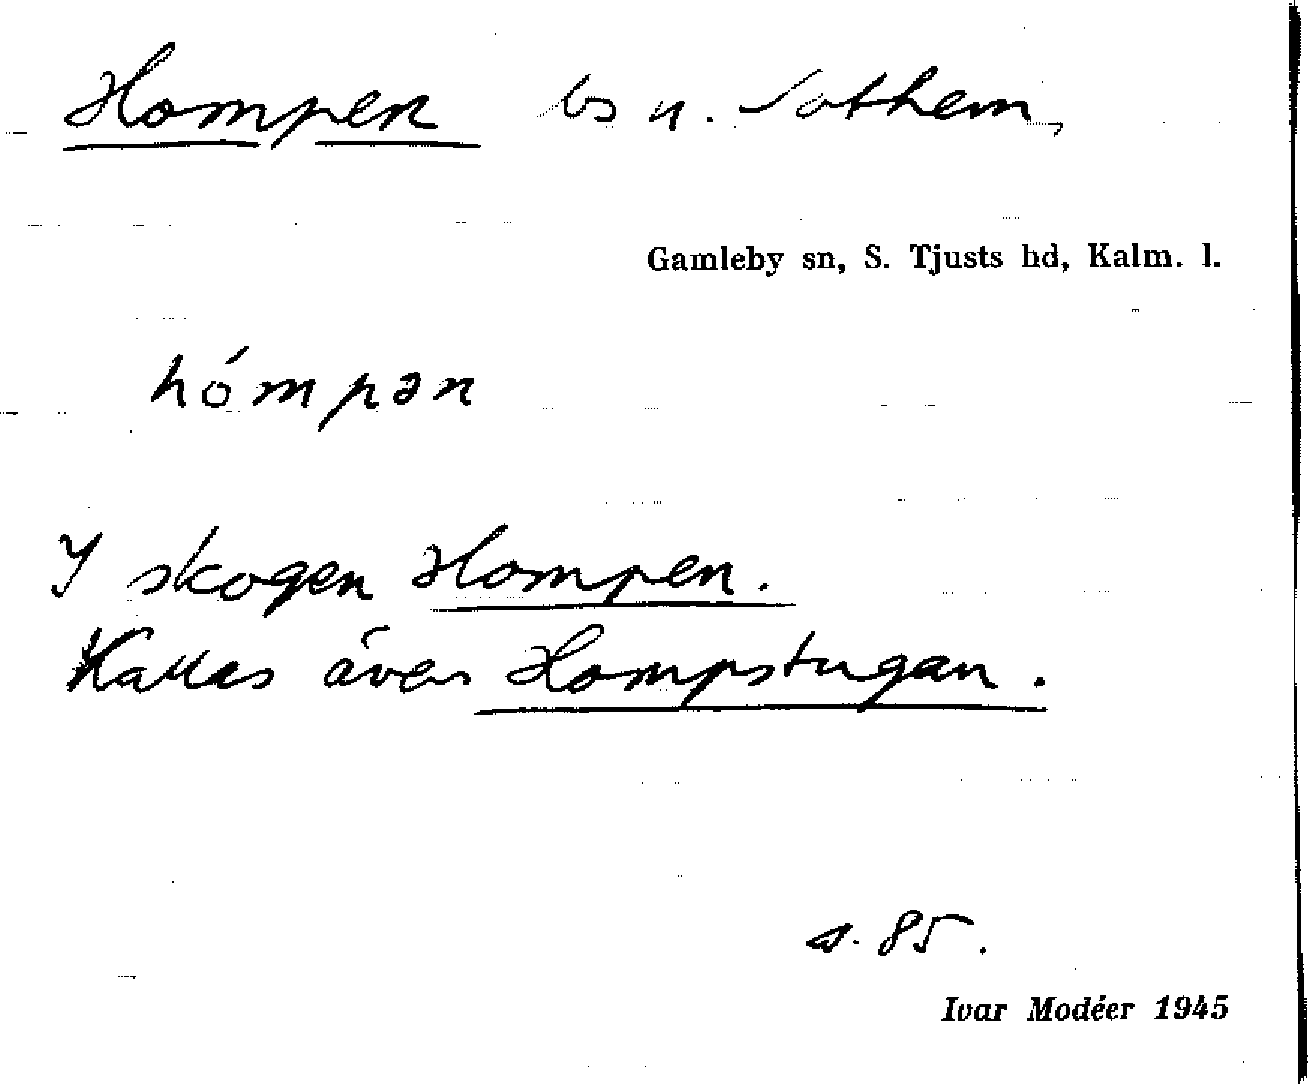 Hompen ls u. Sothem,
Gamleby sn, S. Tjusts hd, Kalm. l.
hómpən
I skogen Hompen.
Kallas även Hompstugan.
s. 85.
Ivar Modéer 1945